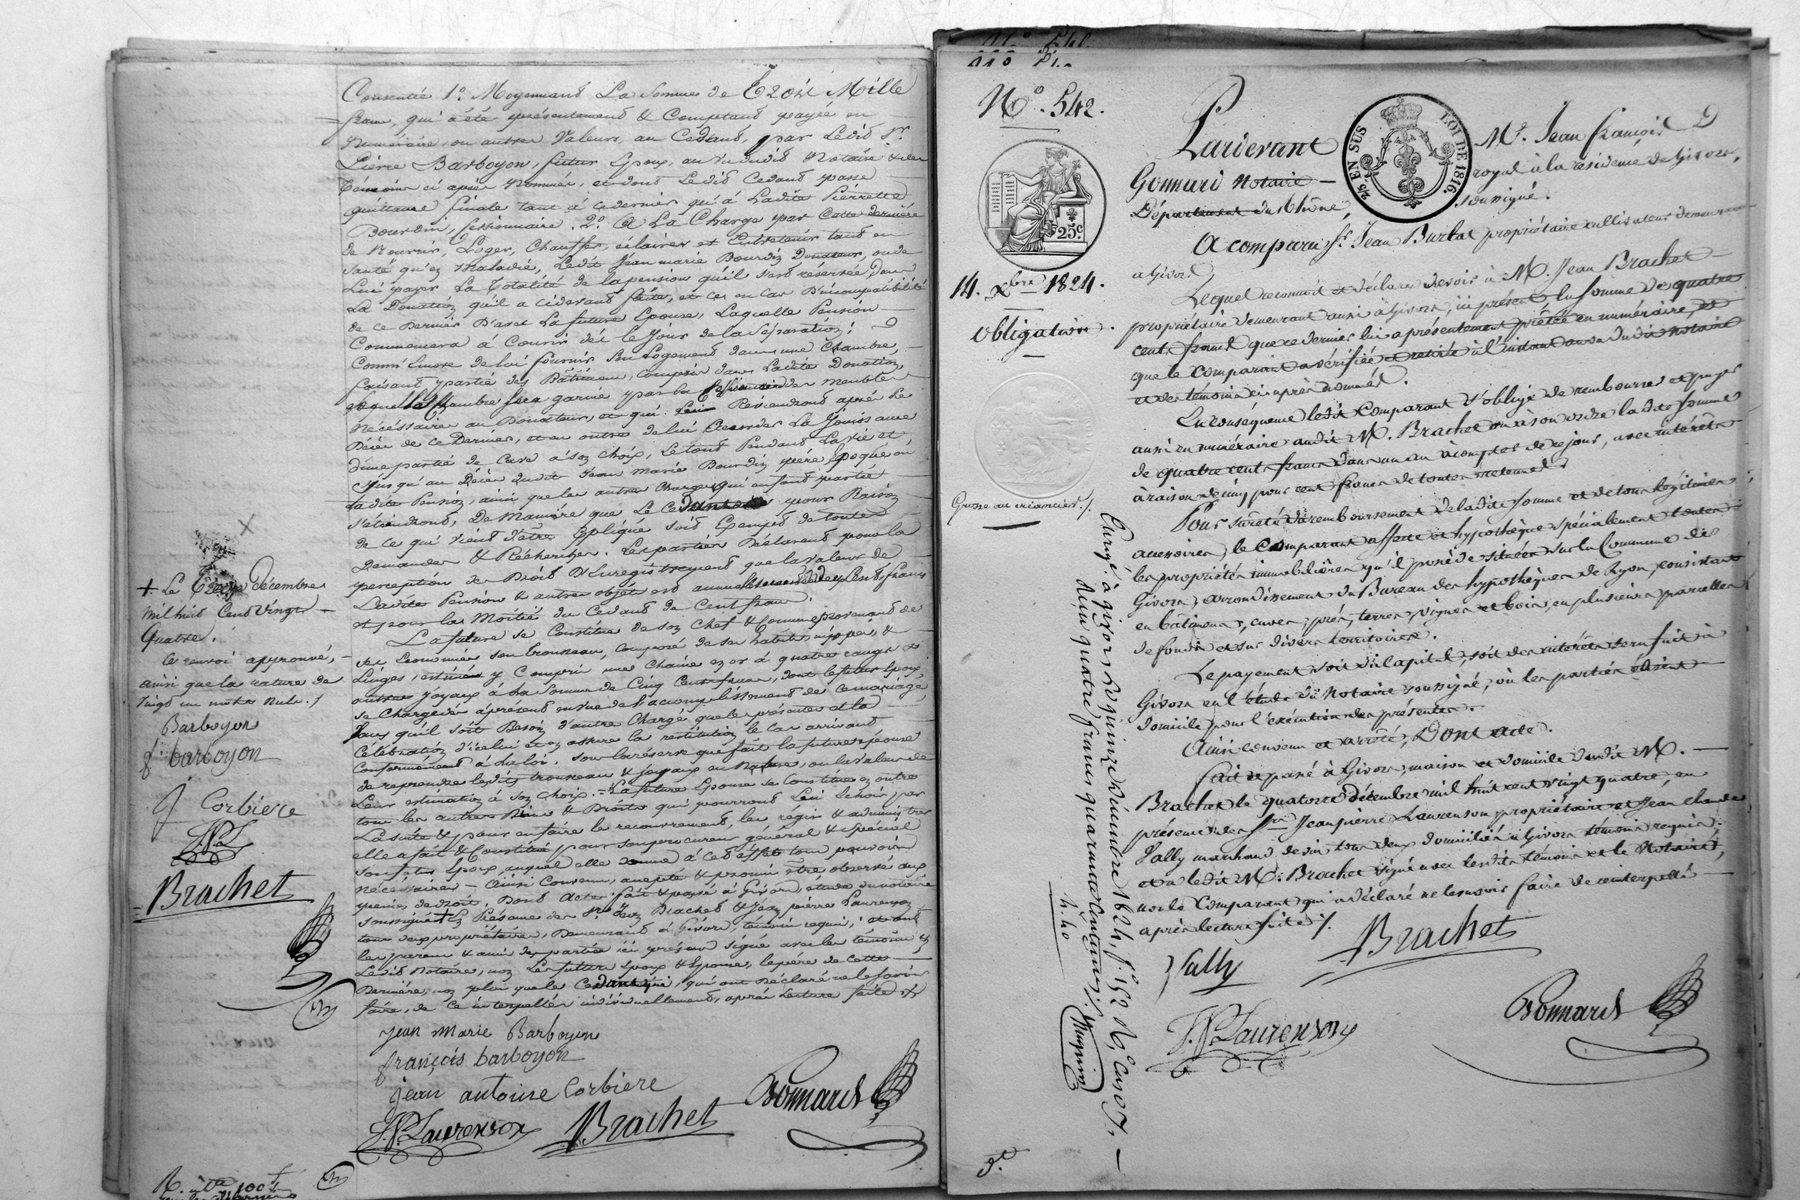 Consentie 1.o Moyennant La Somme de Trois Mille
francs, qui a été présentement & Comptant payée en
Numéraire, ou autres Valeurs, au Cédant, par Ledit Sr.
Pierre Barboyon, futur Epoux, au vu dudit Notaire & des
témoins ci après Nommés, et dont Ledit Cédant passe
quittance finale tant à ce dernier qu'à Ladite Pierrette
Bourdin, Cessionnaire. 2.o A La Charge par Cette dernière
de Nourrir, Loger, Chauffer, éclairer et Entretenir tant en
Santé qu'en Maladie, Ledit Jean marie Bourdin Donateur, ou de
Lui payer La Totalité de la pension qu'il s'est réservée dans
La Donation qu'il a cidevant faite, et ce en cas D'incompatibilité
de ce Dernier D'avec La future Epouse, Laquelle Pension
Commencera à Courir dès le Jour de la Séparation;
Comm'Encore de lui fournir Son Logement dans une Chambre,
faisant partie des Bâtiments, compris dans Ladite Donation,
Laquelle Chambre sera garnie par la des meubles
Nécessaires au Donateur, et qui Reviendront après Le
Décès de ce Dernier, et en outre de lui Céder La Jouissance
d'une partie de Cave à son choix, Le tout Pendant La vie et
Jusqu'au Décès dudit Jean Marie Bourdin père, Epoque où
Ladite Pension, ainsi que les autres Charges qui en font partie
s'éteindront, De Manière que Le Cédant pour Raison
de ce qui vient d'être Expliqué soit Exempt de toutes
Demandes & Recherches. Les parties Déclarent pour la
perception des Droits D'Enregistrement que la Valeur de
Ladite Pension & autres objets est annuellement de Cent francs
et pour La Moitié du Cédant de Cent francs.
La future se Constitue de son Chef & comme provenant de
ses Economies son trousseau, composé de ses habits nippes, &
Linges, estimés y Compris une Chaîne en or à quatre rangs &
autres Joyaux à La Somme de Cinq Cent francs, dont le futur Epoux
se Chargera à présent en vue de l'accomplissement de ce mariage,
sans qu'il soit Besoin d'autre Charge que le présent et la
Célébration d'icelui et en assure la restitution le cas arrivant
Conformément à La loi. sous la réserve que fait la future épouse
de reprendre lesdits trousseau & joyaux en Nature, ou la valeur de
Leur estimation à son Choix. = La future Epouse se Constitue en outre
tous les autres Biens & Droits qui pourront Lui échoir par
La suite & pour en faire le recouvrement les régir & administrer
elle a fait & Constitué pour son procureur général & spécial
Son futur Epoux auquel elle donne à ces effets tout pouvoir
nécessaires — Ainsi Convenu, accepté & promis être observé aux
peines de droit. Dont Acte fait & passé à Givors, étude du notaire
soussigné + En Présence des Srs Jean Brachet & Jean pierre Laurenson
tous deux propriétaires, Demeurants à Givors, témoins requis; et ont
les parents & amis des parties ici présents signé avec les témoins &
Ledit Notaire, non Les futurs Epoux & Epouse, le père de cette
Dernière, non plus que le Cédant, qui ont Déclaré ne le savoir
faire, de ce interpellés individuellement, après lecture faite
Jean Marie Barboyon
françois barboyon
jean antoine Corbiere
J.P. Laurenson Brachet Bonnard
+ Le Treize Décembre
Mil huit Cent Vingt
Quatre.
Ce renvoi approuvé,
ainsi que la rature de
Vingt un mots Nuls.
Barboyon
f barboyon
J Corbiere
J.P.L
Brachet
N.o 542.
14. Xbre 1824.
Obligation.
25.c
Grosse au créancier.
25 EN SUS LOI DE 1816.
Pardevant M.e Jean françois
Gonnard Notaire royal à la résidence de Givors,
Département du Rhône, soussigné.
A comparu Sr. Jean Burlat propriétaire cultivateur demeurant
à Givors
Lequel reconnait et déclare devoir à M. Jean Brachet
propriétaire demeurant aussi à Givors, ici présent la somme de quatre
cents francs que ce dernier lui a présentement prêtée en numéraire, et
que le comparant a vérifiée et retirée à l'instant au vu dudit notaire
et des témoins ci après nommés.
En conséquence ledit comparant s'oblige de rembourser et payer
aussi en numéraire audit M. Brachet ou à son ordre ladite somme
de quatre cents francs dans un an à compter de ce jour, avec intérêts
à raison de cinq pour cent francs de toutes retenues.
Pour sureté du remboursement de ladite somme et de tous légitimes
accessoires, le Comparant affecte et hypothèque spécialement toutes
les propriétés immobilières qu'il possède situées sur la Commune de
Givors, arrondissement du Bureau des hypothèques de Lyon, consistant
en bâtiments, cuves, prés, terres, vignes et bois, en plusieurs parcelles
de fonds et sur divers territoires.
Le payement soit du Capital, soit des intérêts sera fait à
Givors en l'étude du Notaire soussigné, où les parties élisent
domicile pour l'exécution des présentes.
Ainsi convenu et arrêté, Dont acte.
fait et passé à Givors, maison et domicile dudit M.
Brachet le quatorze décembre mil huit cent vingt quatre, en
présence des Srs Jean pierre Laurenson propriétaire et Jean claude
Fally marchand de vin tous deux domiciliés à Givors témoins requis.
et a ledit M. Brachet signé avec lesdits témoins et le Notaire,
non le Comparant qui a déclaré ne le savoir faire de ce interpellé
après lecture faite /.
Fally Brachet
J.P. Laurenson Bonnard
Enrgé à givors, le quinze décembre 1824, f.o 152 R.o, C.es 6 et 7.
Reçu quatre francs quarante centimes.
4.40